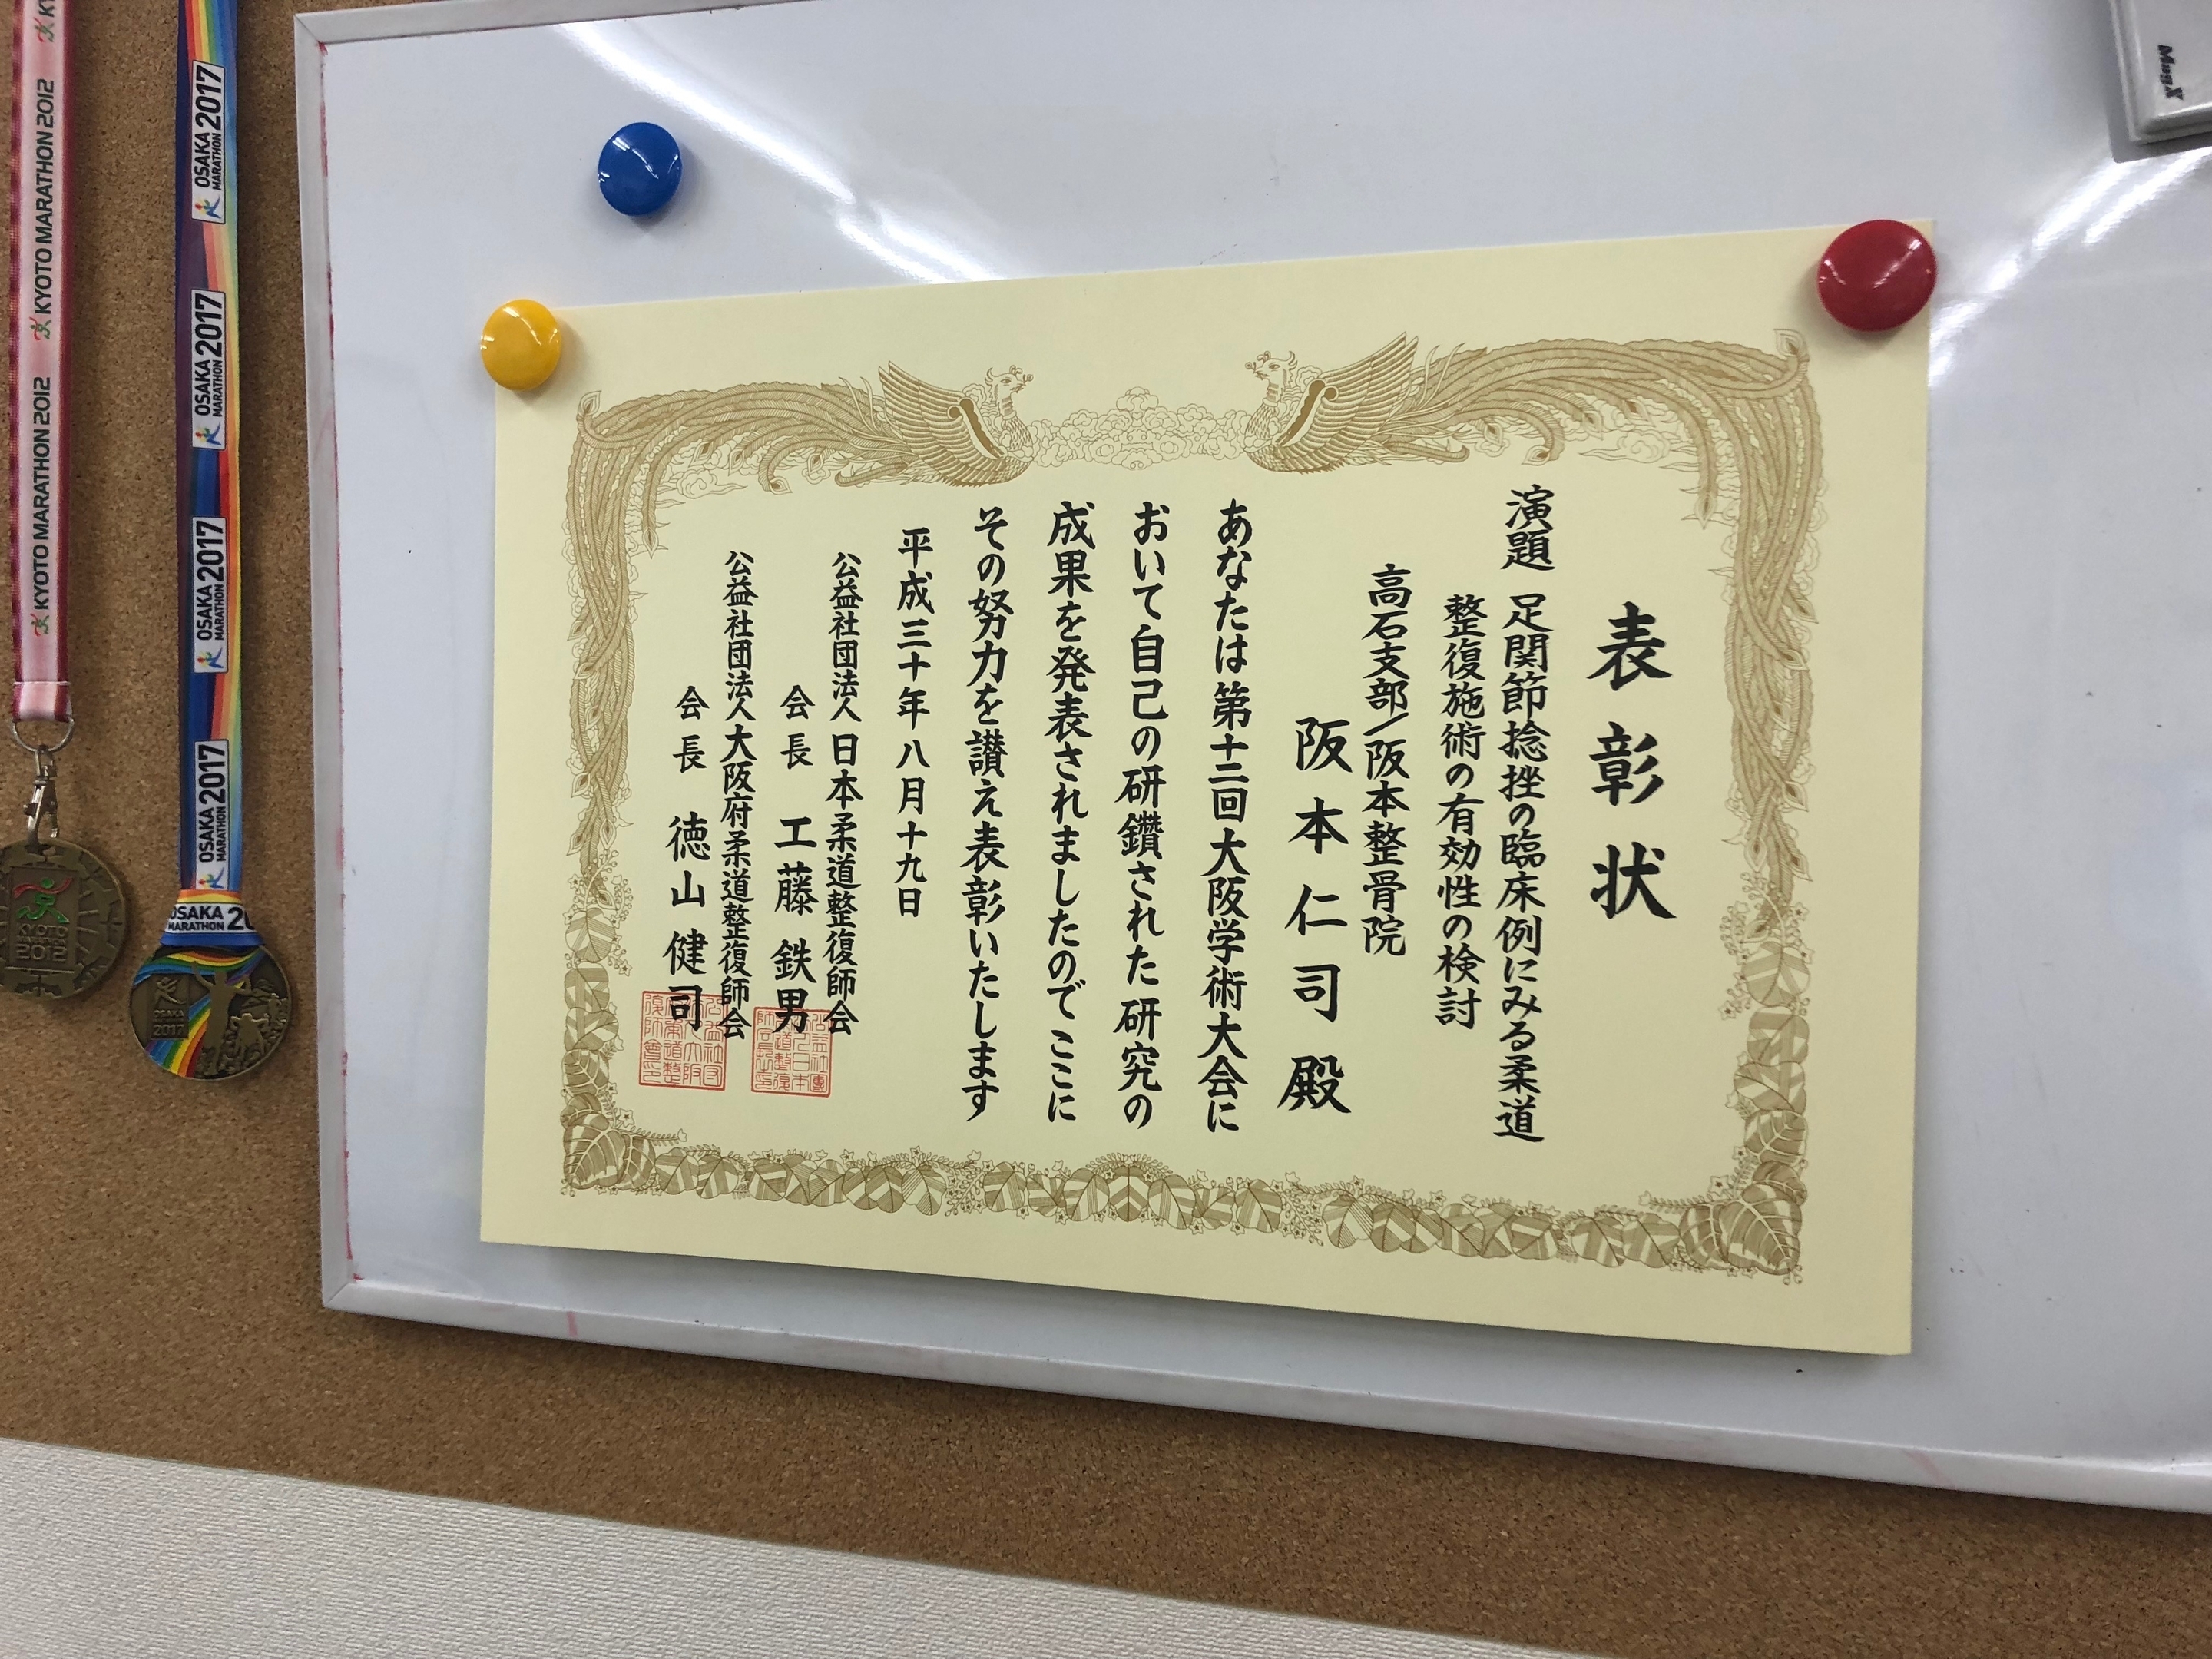 表彰状
演題 足関節捻挫の臨床例にみる柔道
整復施術の有効性の検討
高石支部/阪本整骨院
阪本仁司殿
あなたは第十二回大阪学術大会に
おいて自己の研鑽された研究の
成果を発表されましたのでここに
その努力を讃え表彰いたします
平成三十年八月十九日
公益社団法人日本柔道整復師会
会長 工藤鉄男
公益社団法人大阪府柔道整復師会
会長 徳山健司
KYOTO MARATHON 2012
KYOTO MARATHON 2012
KYOTO
2012
OSAKA MARATHON 2017
OSAKA MARATHON 2017
OSAKA MARATHON 2017
OSAKA MARATHON 2017
OSAKA MARATHON 20
OSAKA
2017
MagX